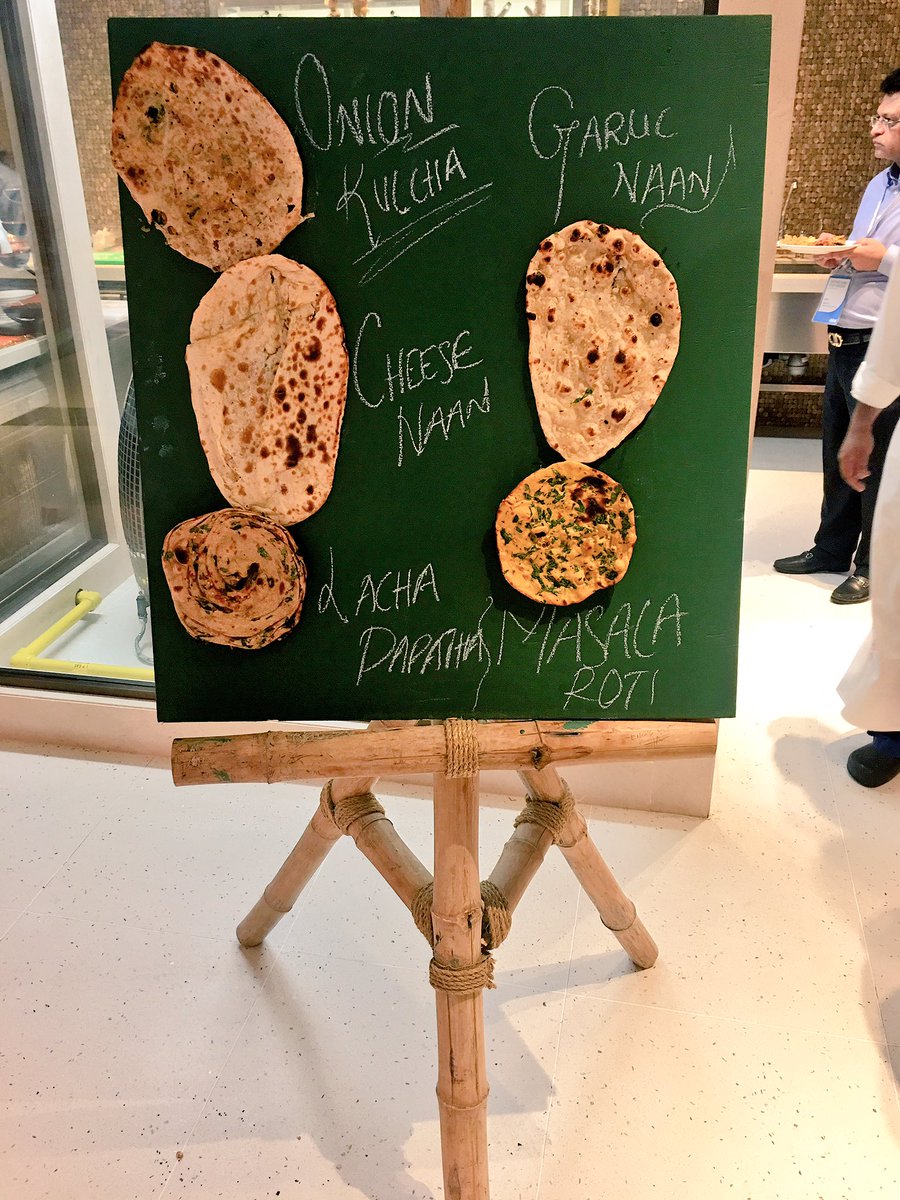 ONION
KULCHA
GARLIC
NAAN
CHEESE
NAAN
LACHA
PARATHA
MASALA
ROTI